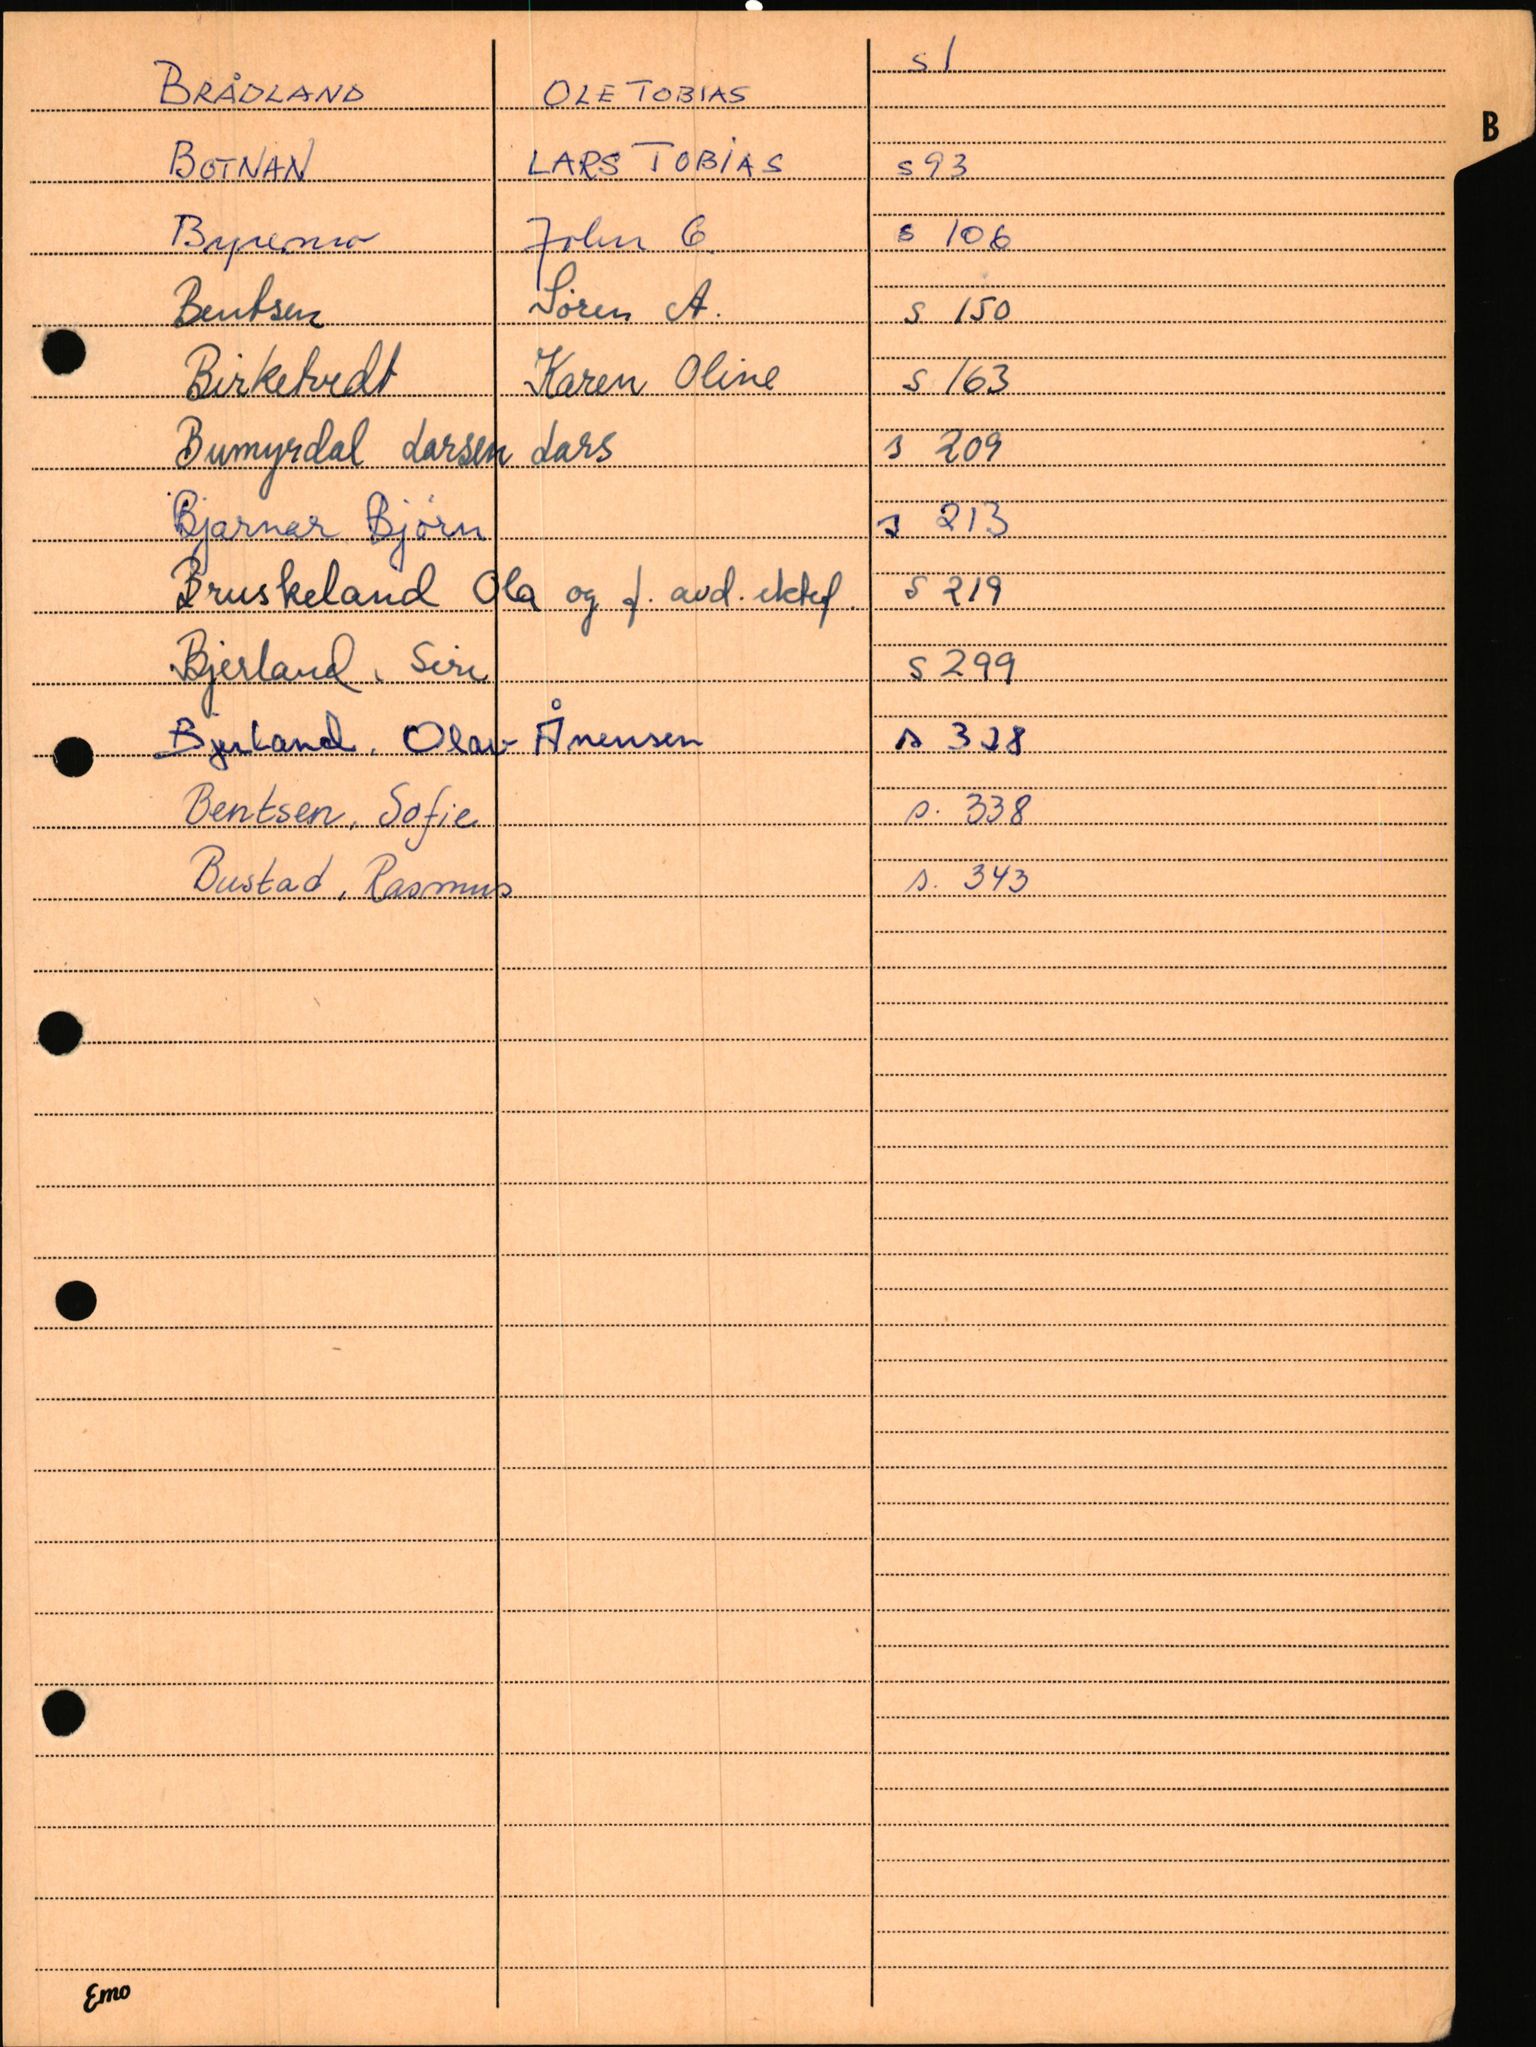 B
BRÅDLAND OLE TOBIAS s 1
BOTNAN LARS TOBIAS s 93
Byremo John G. s 106
Bentsen Sören A. s 150
Birketvedt Karen Oline s 163
Bumyrdal Larsen Lars s 209
Bjarnar Björn s 213
Bruskeland Ola og f. avd. ektef. s 219
Bjerland, Siri s 299
Bjerland, Olav Ånensen s 328
Bentsen, Sofie s. 338
Bustad, Rasmus s. 343
Emo